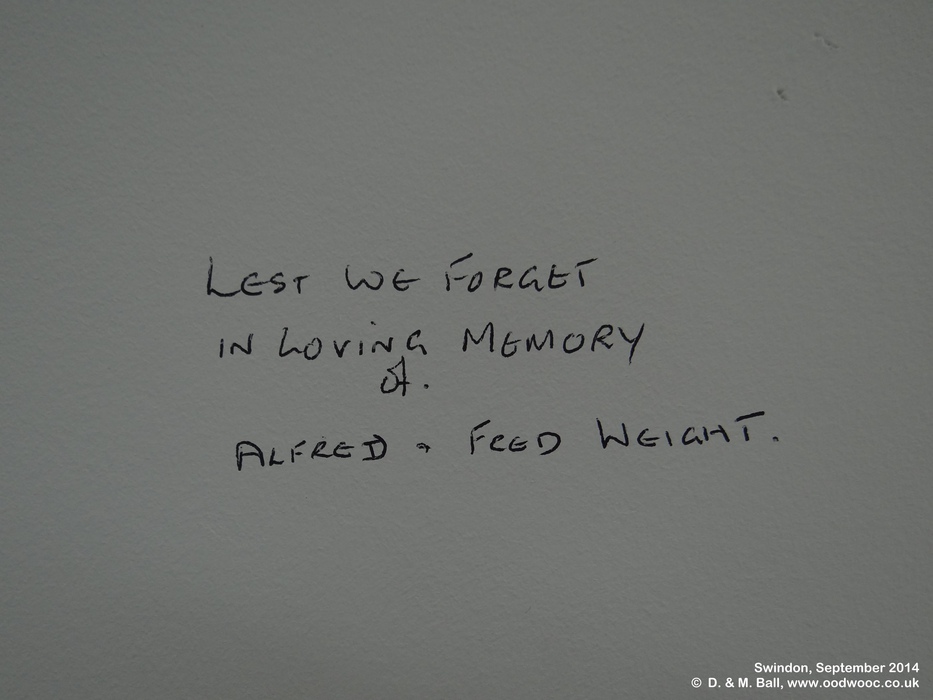 LEST WE FORGET
IN LOVING MEMORY
of.
ALFRED & FRED WEIGHT.
Swindon, September 2014
© D. & M. Ball, www.oodwooc.co.uk